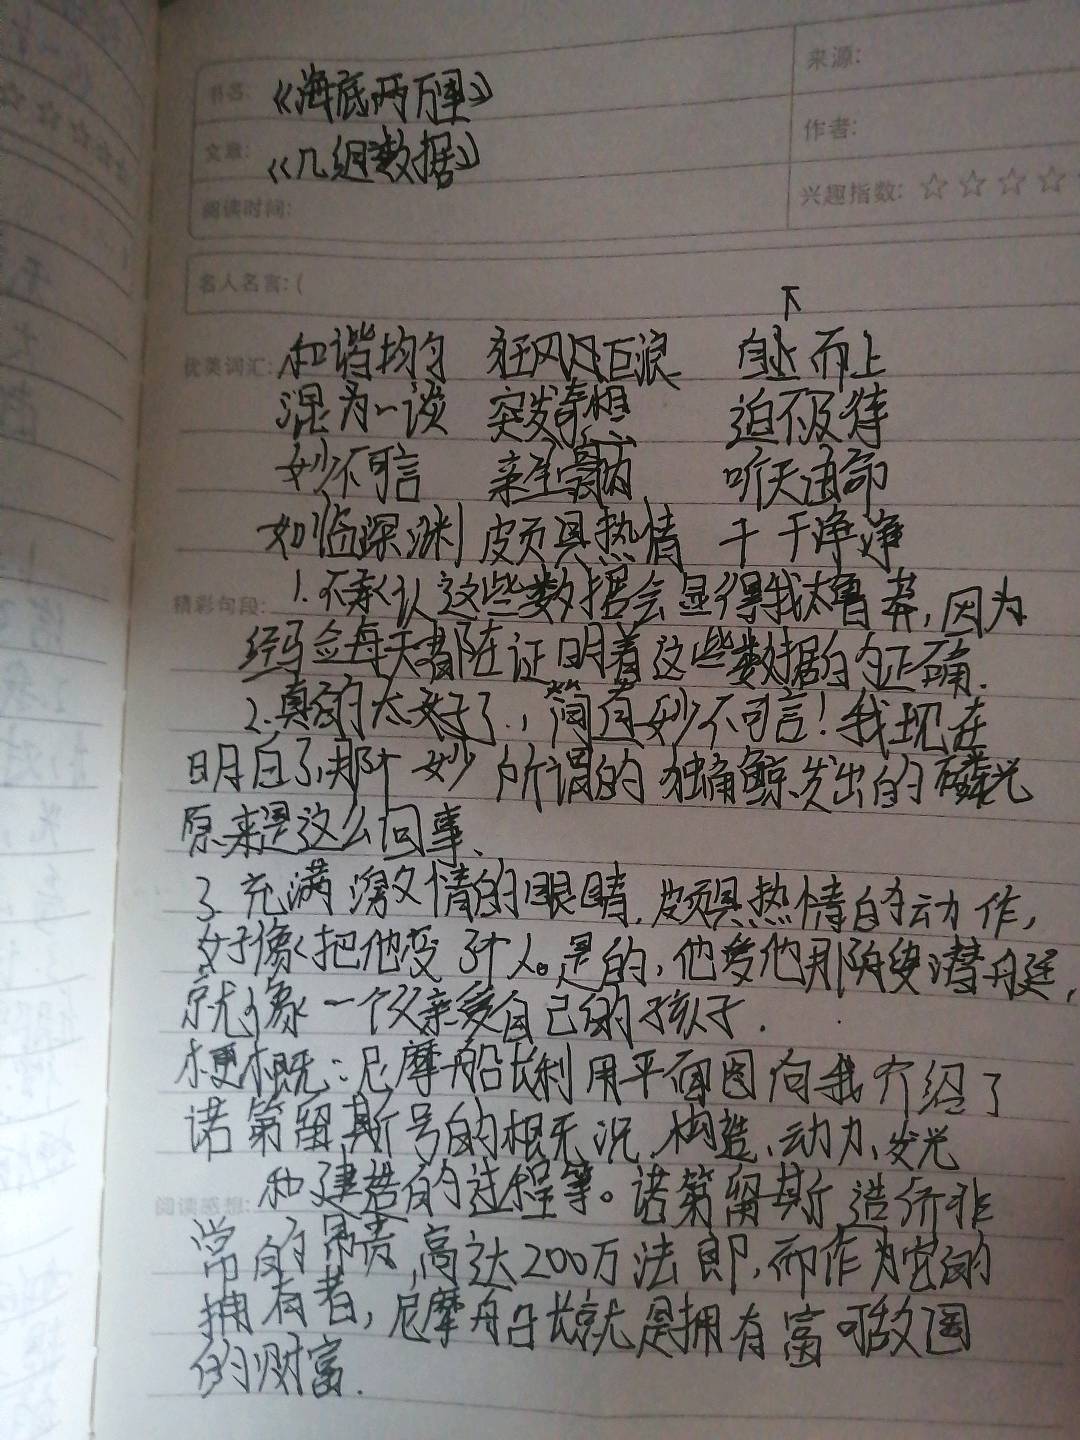 书名: 《海底两万里》
来源:
文章: 《几组数据》
作者:
阅读时间:
兴趣指数: ☆ ☆ ☆ ☆
名人名言: (
下
优美词汇: 和谐均匀 狂风巨浪 自上而上
混为一谈 突发奇想 迫不及待
妙不可言 亲王海纳 听天由命
如临深渊 颇具热情 干干净净
精彩句段: 1.不承认这些数据会显得我太鲁莽,因为
经验每天都在证明着这些数据的正确.
2.真的太好了,简直妙不可言!我现在
明白了,那个妙所谓的独角鲸发出的磷光
原来是这么回事、
3.充满激情的眼睛,颇具热情的动作,
好像把他变了个人。是的,他爱他那艘潜舟艇,
就像一个父亲爱自己的孩子.
梗概:尼摩船长利用平面图向我介绍了
诺第留斯号的概况、构造、动力、发光
阅读感想: 和建造的过程等。诺第留斯造价非
常的昂贵,高达200万法郎,而作为它的
拥有者,尼摩船长就是拥有富可敌国
的财富.